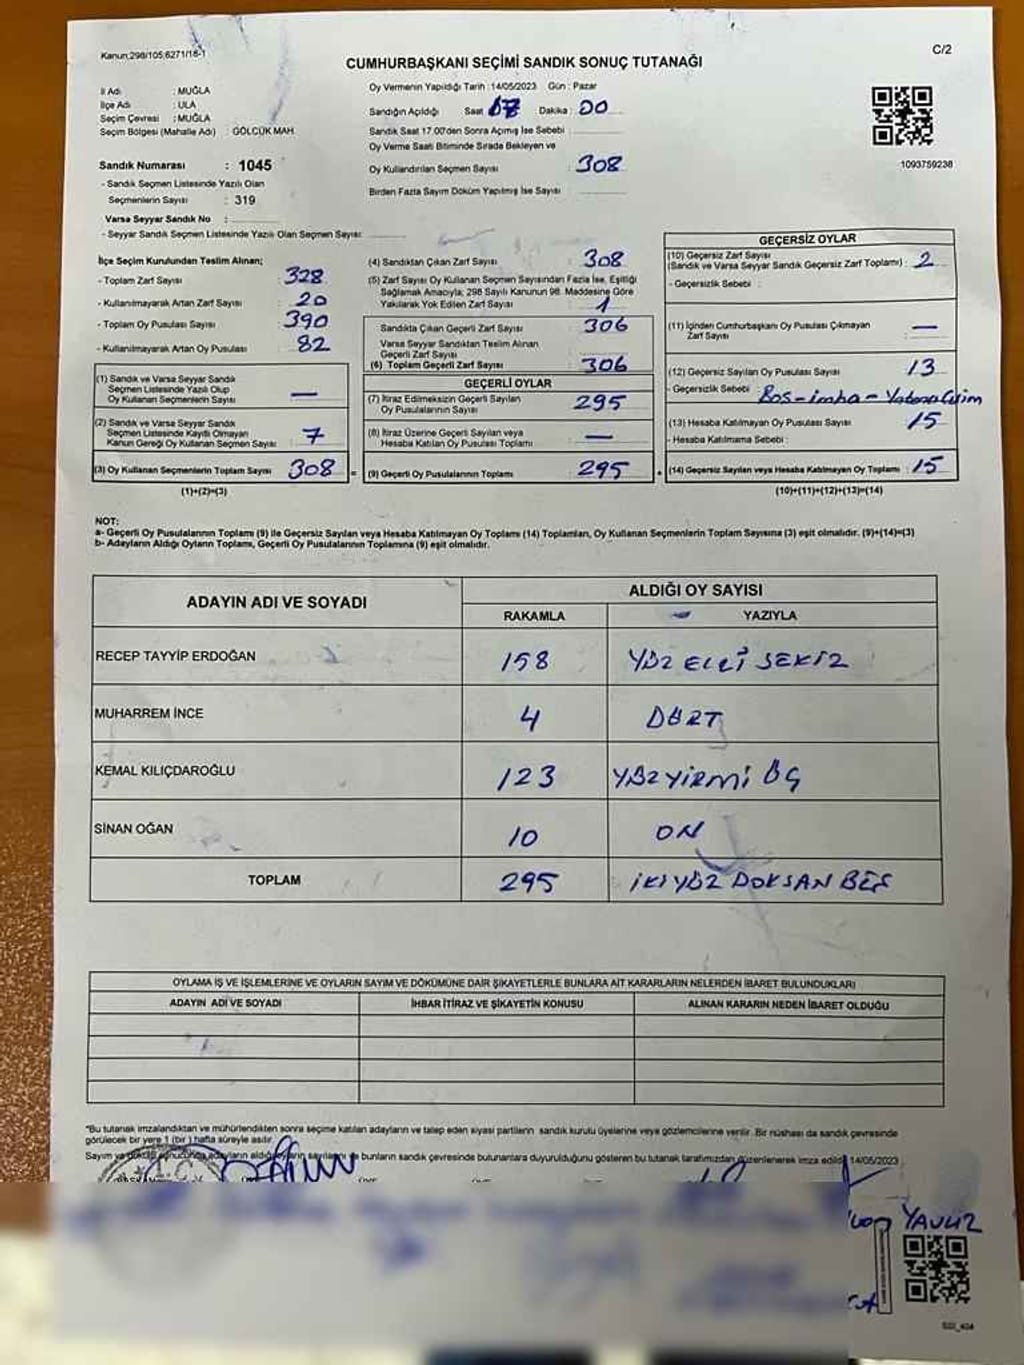 Kanun;298/105;6271/18-1
C/2
CUMHURBAŞKANI SEÇİMİ SANDIK SONUÇ TUTANAĞI
İl Adı : MUĞLA
İlçe Adı : ULA
Seçim Çevresi : MUĞLA
Seçim Bölgesi (Mahalle Adı) : GÖLCÜK MAH.
Sandık Numarası : 1045
- Sandık Seçmen Listesinde Yazılı Olan
Seçmenlerin Sayısı : 319
Varsa Seyyar Sandık No :
- Seyyar Sandık Seçmen Listesinde Yazılı Olan Seçmen Sayısı:
Oy Vermenin Yapıldığı Tarih :14/05/2023 Gün : Pazar
Sandığın Açıldığı Saat Dakika : 00
Sandık Saat 17.00'den Sonra Açılmış İse Sebebi :
Oy Verme Saati Bitiminde Sırada Bekleyen ve
Oy Kullandırılan Seçmen Sayısı : 308
Birden Fazla Sayım Döküm Yapılmış İse Sayısı :
1093759238
İlçe Seçim Kurulundan Teslim Alınan;
- Toplam Zarf Sayısı : 328
- Kullanılmayarak Artan Zarf Sayısı : 20
- Toplam Oy Pusulası Sayısı : 390
- Kullanılmayarak Artan Oy Pusulası : 82
(1) Sandık ve Varsa Seyyar Sandık
Seçmen Listesinde Yazılı Olup
Oy Kullanan Seçmenlerin Sayısı : —
(2) Sandık ve Varsa Seyyar Sandık
Seçmen Listesinde Kayıtlı Olmayan
Kanun Gereği Oy Kullanan Seçmen Sayısı : 7
(3) Oy Kullanan Seçmenlerin Toplam Sayısı : 308
(1)+(2)=(3)
(4) Sandıktan Çıkan Zarf Sayısı : 308
(5) Zarf Sayısı Oy Kullanan Seçmen Sayısından Fazla İse, Eşitliği
Sağlamak Amacıyla; 298 Sayılı Kanunun 98. Maddesine Göre
Yakılarak Yok Edilen Zarf Sayısı : 1
Sandıkta Çıkan Geçerli Zarf Sayısı : 306
Varsa Seyyar Sandıktan Teslim Alınan
Geçerli Zarf Sayısı :
(6) Toplam Geçerli Zarf Sayısı : 306
GEÇERLİ OYLAR
(7) İtiraz Edilmeksizin Geçerli Sayılan
Oy Pusulalarının Sayısı : 295
(8) İtiraz Üzerine Geçerli Sayılan veya
Hesaba Katılan Oy Pusulası Toplamı : —
(9) Geçerli Oy Pusulalarının Toplamı : 295
GEÇERSİZ OYLAR
(10) Geçersiz Zarf Sayısı
(Sandık ve Varsa Seyyar Sandık Geçersiz Zarf Toplamı) : 2
- Geçersizlik Sebebi :
(11) İçinden Cumhurbaşkanı Oy Pusulası Çıkmayan
Zarf Sayısı : —
(12) Geçersiz Sayılan Oy Pusulası Sayısı : 13
- Geçersizlik Sebebi : Bos-imha-
(13) Hesaba Katılmayan Oy Pusulası Sayısı : 15
- Hesaba Katılmama Sebebi :
(14) Geçersiz Sayılan veya Hesaba Katılmayan Oy Toplamı : 15
(10)+(11)+(12)+(13)=(14)
NOT:
a- Geçerli Oy Pusulalarının Toplamı (9) ile Geçersiz Sayılan veya Hesaba Katılmayan Oy Toplamı (14) Toplamları, Oy Kullanan Seçmenlerin Toplam Sayısına (3) eşit olmalıdır. (9)+(14)=(3)
b- Adayların Aldığı Oyların Toplamı, Geçerli Oy Pusulalarının Toplamına (9) eşit olmalıdır.
ADAYIN ADI VE SOYADI
ALDIĞI OY SAYISI
RAKAMLA YAZIYLA
RECEP TAYYİP ERDOĞAN 158 YÜZ ELLİ SEKİZ
MUHARREM İNCE 4 DÖRT
KEMAL KILIÇDAROĞLU 123 YÜZ YİRMİ ÜÇ
SİNAN OĞAN 10 ON
TOPLAM 295 İKİ YÜZ DOKSAN BEŞ
OYLAMA İŞ VE İŞLEMLERİNE VE OYLARIN SAYIM VE DÖKÜMÜNE DAİR ŞİKAYETLERLE BUNLARA AİT KARARLARIN NELERDEN İBARET BULUNDUKLARI
ADAYIN ADI VE SOYADI İHBAR İTİRAZ VE ŞİKAYETİN KONUSU ALINAN KARARIN NEDEN İBARET OLDUĞU
*Bu tutanak imzalandıktan ve mühürlendikten sonra seçime katılan adayların ve talep eden siyasi partilerin sandık kurulu üyelerine veya gözlemcilerine verilir. Bir nüshası da sandık çevresinde
görülecek bir yere 1 (bir) hafta süreyle asılır.
Sayım ve döküm sonucunda adayların aldığı oyların sayılarını ve bunların sandık çevresinde bulunanlara duyurulduğunu gösteren bu tutanak tarafımızdan düzenlenerek imza edildi. 14/05/2023
YAVUZ